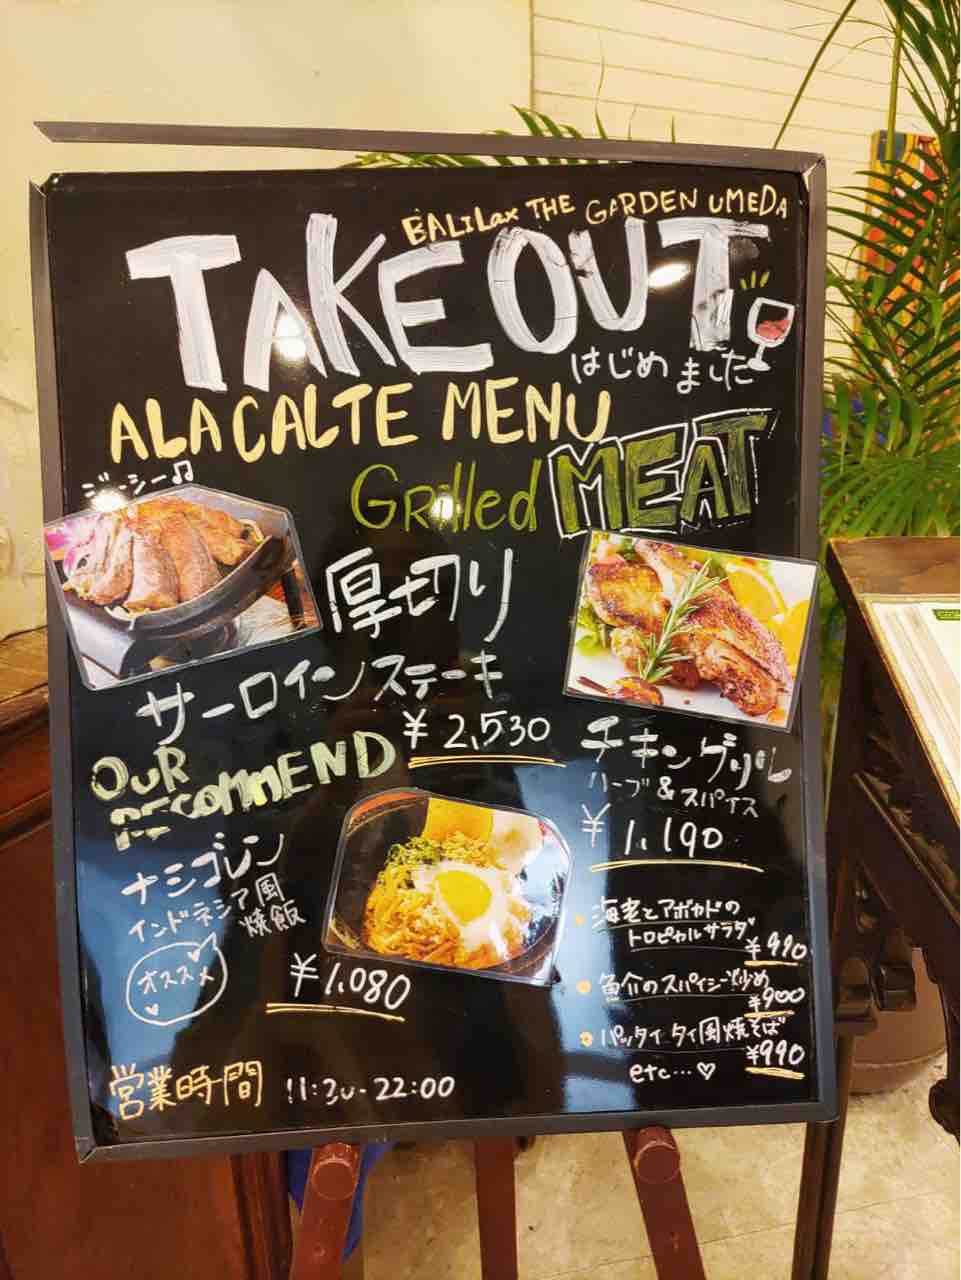 BALILax THE GARDEN UMEDA
TAKE OUT
はじめました
ALACALTE MENU
Grilled MEAT
ジューシー♫
厚切り
サーロインステーキ
¥2,530
チキングリル
ハーブ&スパイス
¥1,190
OUR
RECOMMEND
ナシゴレン
インドネシア風
焼飯
オススメ
¥1,080
海老とアボカドの
トロピカルサラダ
¥990
魚介のスパイシー炒め
¥900
パッタイ タイ風焼そば
¥990
etc…♡
営業時間 11:30-22:00